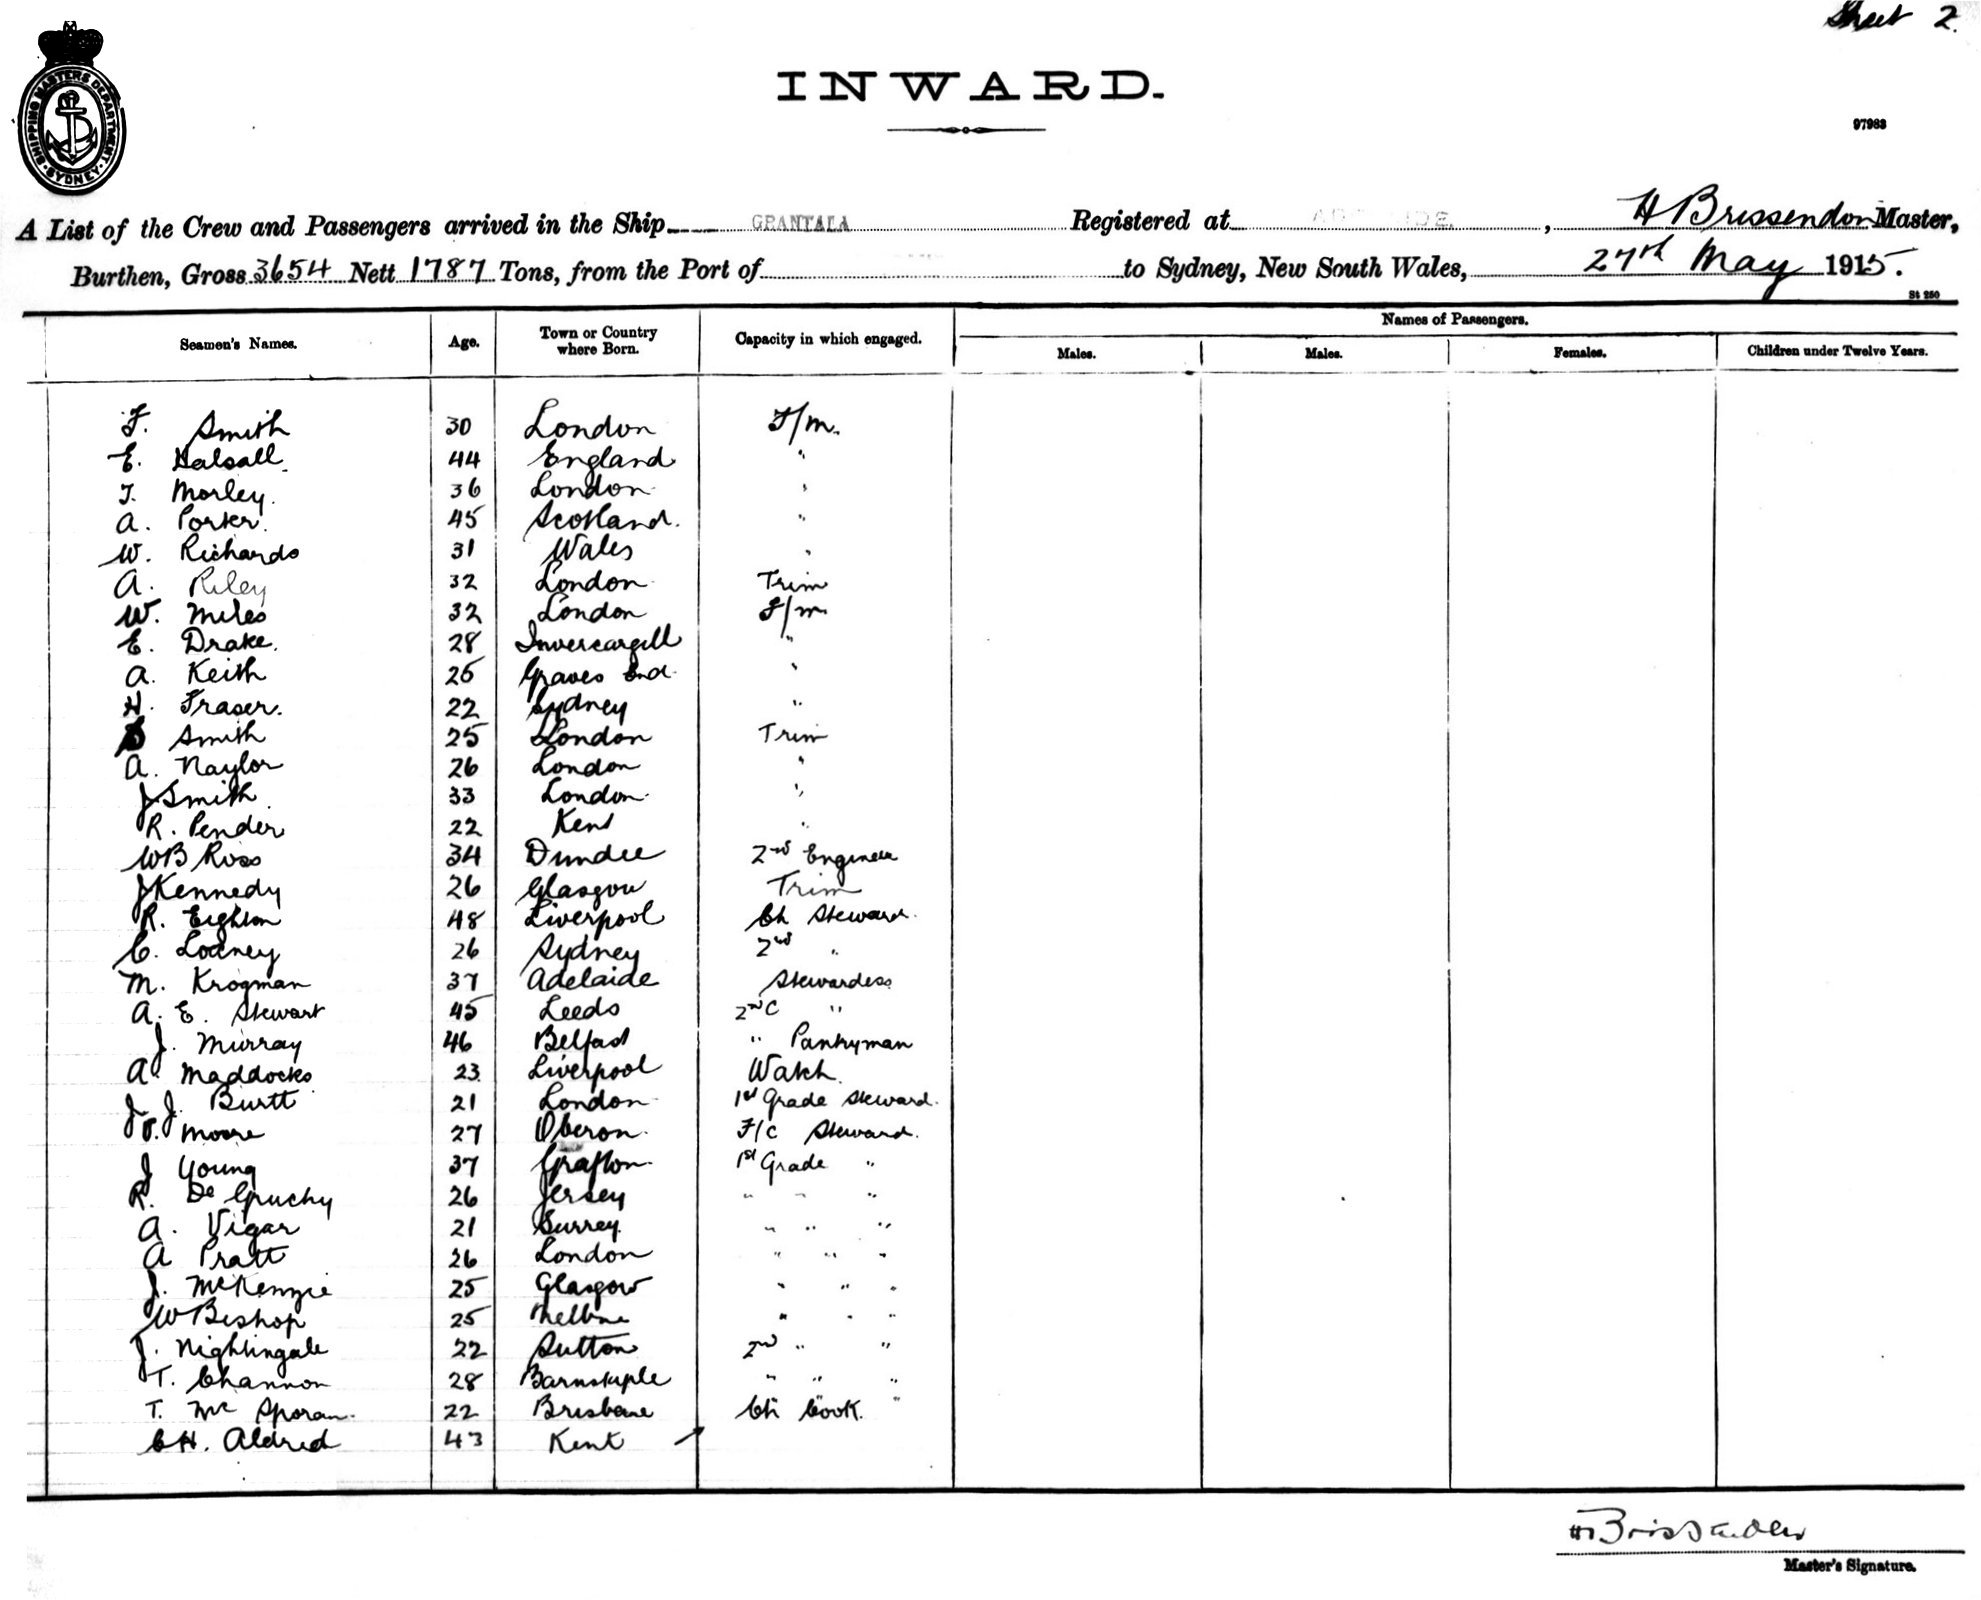 Sheet 2.
SHIPPING MASTERS DEPARTMENT
SYDNEY
INWARD.
97983
A List of the Crew and Passengers arrived in the Ship GRANTALA Registered at , H Brissendon Master,
Burthen, Gross 3654 Nett 1787 Tons, from the Port of to Sydney, New South Wales, 27th May 1915.
St 250
Seamen's Names. Age. Town or Country where Born. Capacity in which engaged. Names of Passengers.
Males. Males. Females. Children under Twelve Years.
F. Smith 30 London F/m.
E. Halsall 44 England "
T. Morley. 36 London "
A. Porter. 45 Scotland. "
W. Richards 31 Wales "
A. Riley 32 London Trim
W. Miles 32 London F/m
E. Drake. 28 Invercargill "
A. Keith 25 Graves End "
H. Fraser. 22 Sydney "
Smith 25 London Trim
A. Naylor 26 London "
J Smith 33 London "
R. Pender 22 Kent "
WB Ross 34 Dundee 2nd Engineer
J Kennedy 26 Glasgow Trim
R. Eighton 48 Liverpool Ch Steward
C. Lodney 26 Sydney 2nd "
M. Krogman 37 Adelaide Stewardess
A. E. Stewart 45 Leeds 2nd C "
J. Murray 46 Belfast " Pantryman
A. Maddocks 23 Liverpool Watch
J. J. Burtt 21 London 1st Grade Steward.
Moore 27 Oberon F/C Steward.
J Young 37 Grafton 1st Grade "
R. De Gruchy 26 Jersey " " "
A. Vigar 21 Surrey " " "
A Pratt 26 London " " "
J. McKenzie 25 Glasgow " " "
W Bishop 25 Melbne " " "
J. Nightingale 22 Sutton 2nd " "
T. Channon 28 Barnstaple " " "
T. Mc Sporan 22 Brisbane Ch Cook. "
C H. Aldred 43 Kent
H Brissenden
Master's Signature.